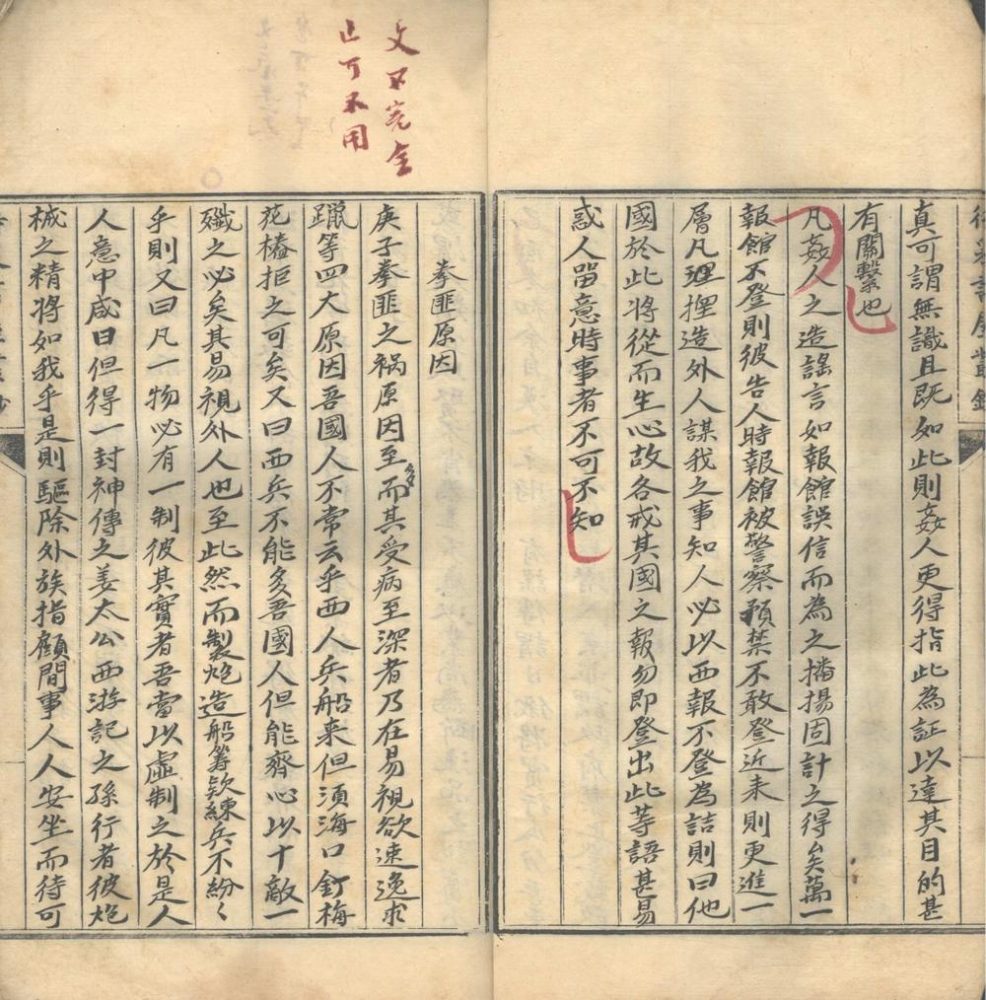 真可謂無識且既如此則姦人更得指此為証以達其目的甚
有關繫也
凡姦人之造謠言如報館誤信而為之播揚固計之得矣萬一
報館不登則彼告人時報館被警察預禁不敢登近来則更進一
層凡遇捏造外人謀我之事知人必以西報不登為詰則曰他
國於此將從而生心故各戒其國之報勿即登出此等語甚易
惑人留意時事者不可不知
文不完全
止可不用
拳匪原因
庚子拳匪之禍原因至多而其受病至深者乃在易視欲速逸求
躐等四大原因吾國人不常云乎西人兵船来但須海口釘梅
花樁拒之可矣又曰西兵不能多吾國人但能齊心以十敵一
殲之必矣其易視外人也至此然而製炮造船籌欵練兵不紛々
乎則又曰凡一物必有一制彼其實者吾當以虛制之於是人
人意中咸曰但得一封神傳之姜太公西游記之孫行者彼炮
械之精將如我乎是則驅除外族指顧間事人人安坐而待可